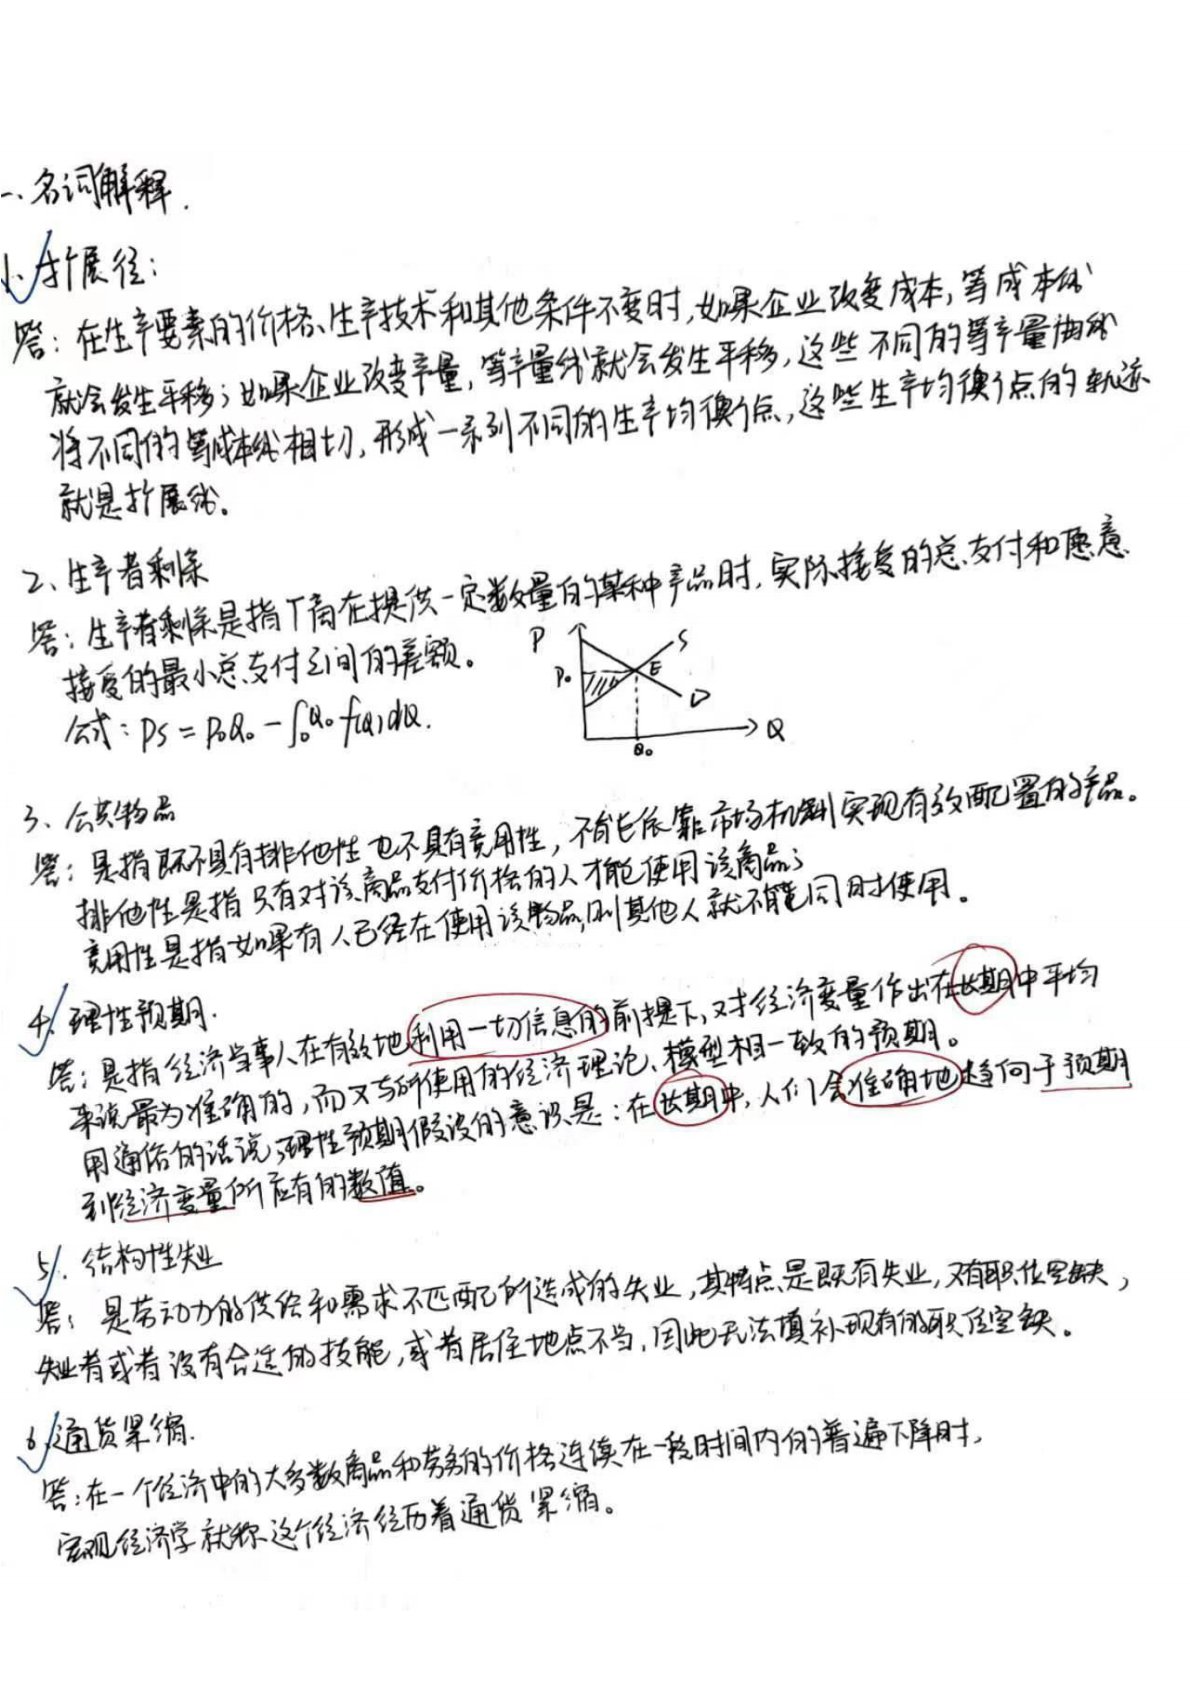 一、名词解释.
1、扩展径：
答：在生产要素的价格、生产技术和其他条件不变时,如果企业改变成本,等成本线
就会发生平移；如果企业改变产量,等产量线就会发生平移,这些不同的等产量曲线
将不同的等成本线相切,形成一系列不同的生产均衡点,这些生产均衡点的轨迹
就是扩展线。
2、生产者剩余
答：生产者剩余是指厂商在提供一定数量的某种产品时,实际接受的总支付和愿意
接受的最小总支付之间的差额。
公式：PS = P₀Q₀ - ∫₀^Q₀ f(Q)dQ.
P
S
P₀
E
D
Q₀
Q
3、公共物品
答：是指既不具有排他性也不具有竞用性,不能依靠市场机制实现有效配置的产品。
排他性是指只有对该商品支付价格的人才能使用该商品；
竞用性是指如果有人已经在使用该物品,则其他人就不能同时使用。
4、理性预期.
答：是指经济当事人在有效地利用一切信息的前提下,对经济变量作出在长期中平均
来说最为准确的,而又与所使用的经济理论、模型相一致的预期。
用通俗的话说,理性预期假设的意识是：在长期中,人们会准确地趋向于预期
到经济变量所应有的数值。
5、结构性失业
答：是劳动力的供给和需求不匹配所造成的失业,其特点是既有失业,又有职位空缺,
失业者或者没有合适的技能,或者居住地点不当,因此无法填补现有的职位空缺。
6、通货紧缩.
答：在一个经济中的大多数商品和劳务的价格连续在一段时间内的普遍下降时,
宏观经济学就称这个经济经历着通货紧缩。